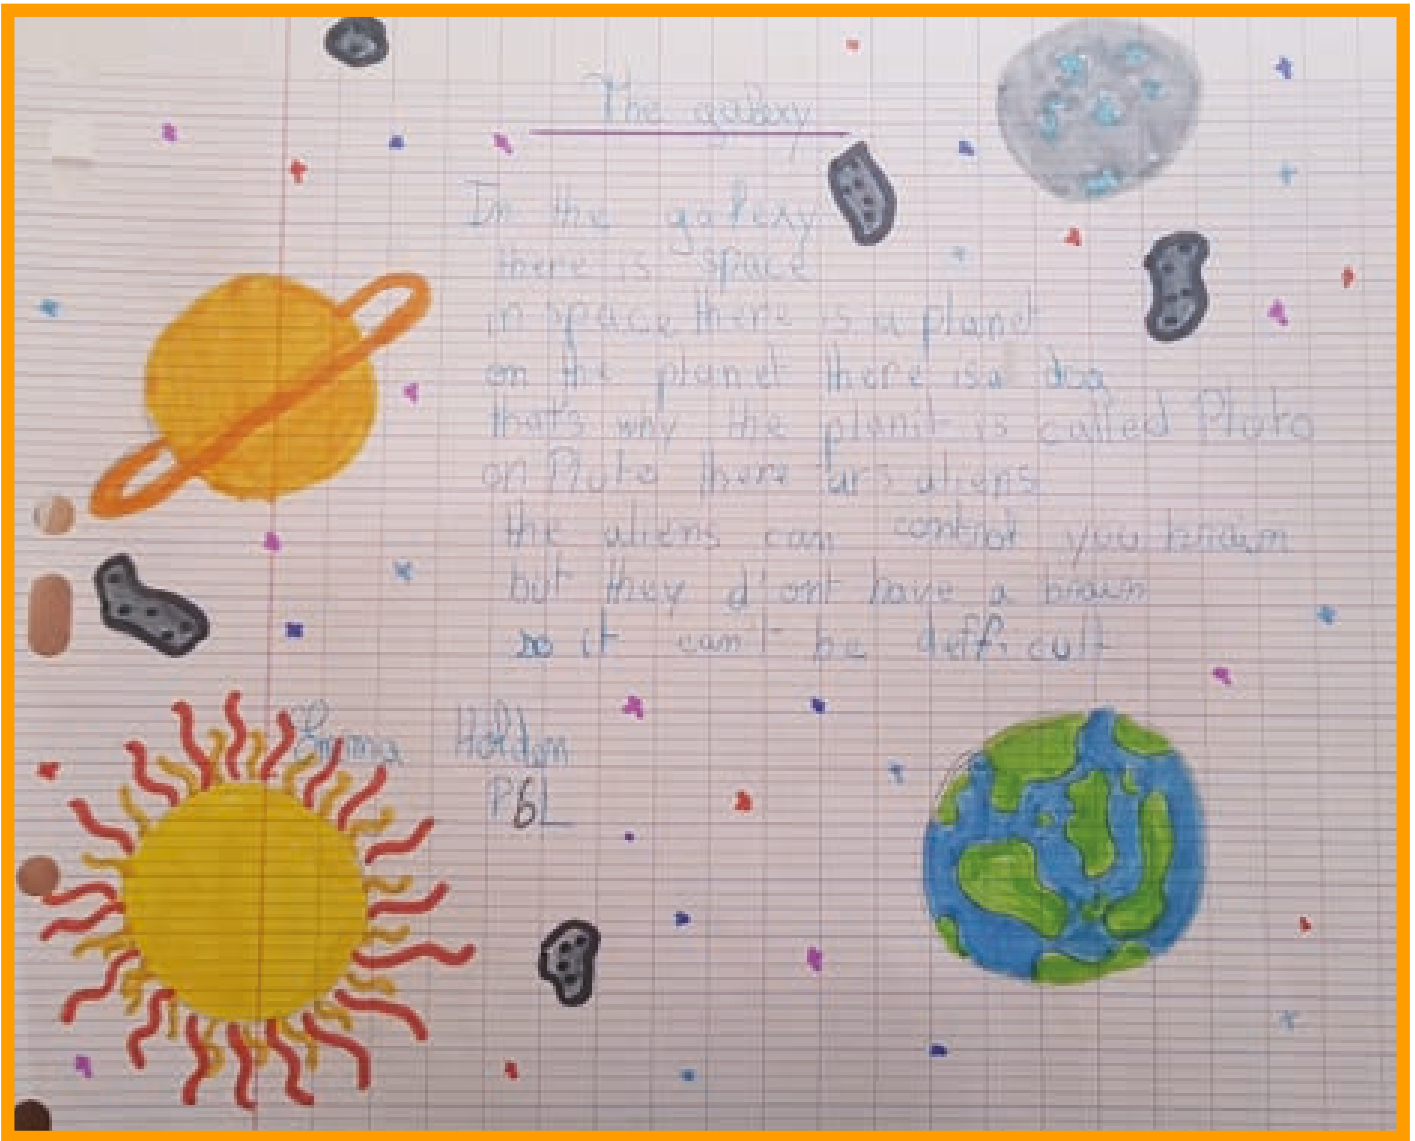 The galaxy
In the galexy
there is space
in space there is a planet
on the planet there is a dog
that's why the planit is called Pluto
on Pluto there ars aliens
the aliens can control you braim
but they d'ont have a brain
so it can't be defficult
Emma Holdan
P6L